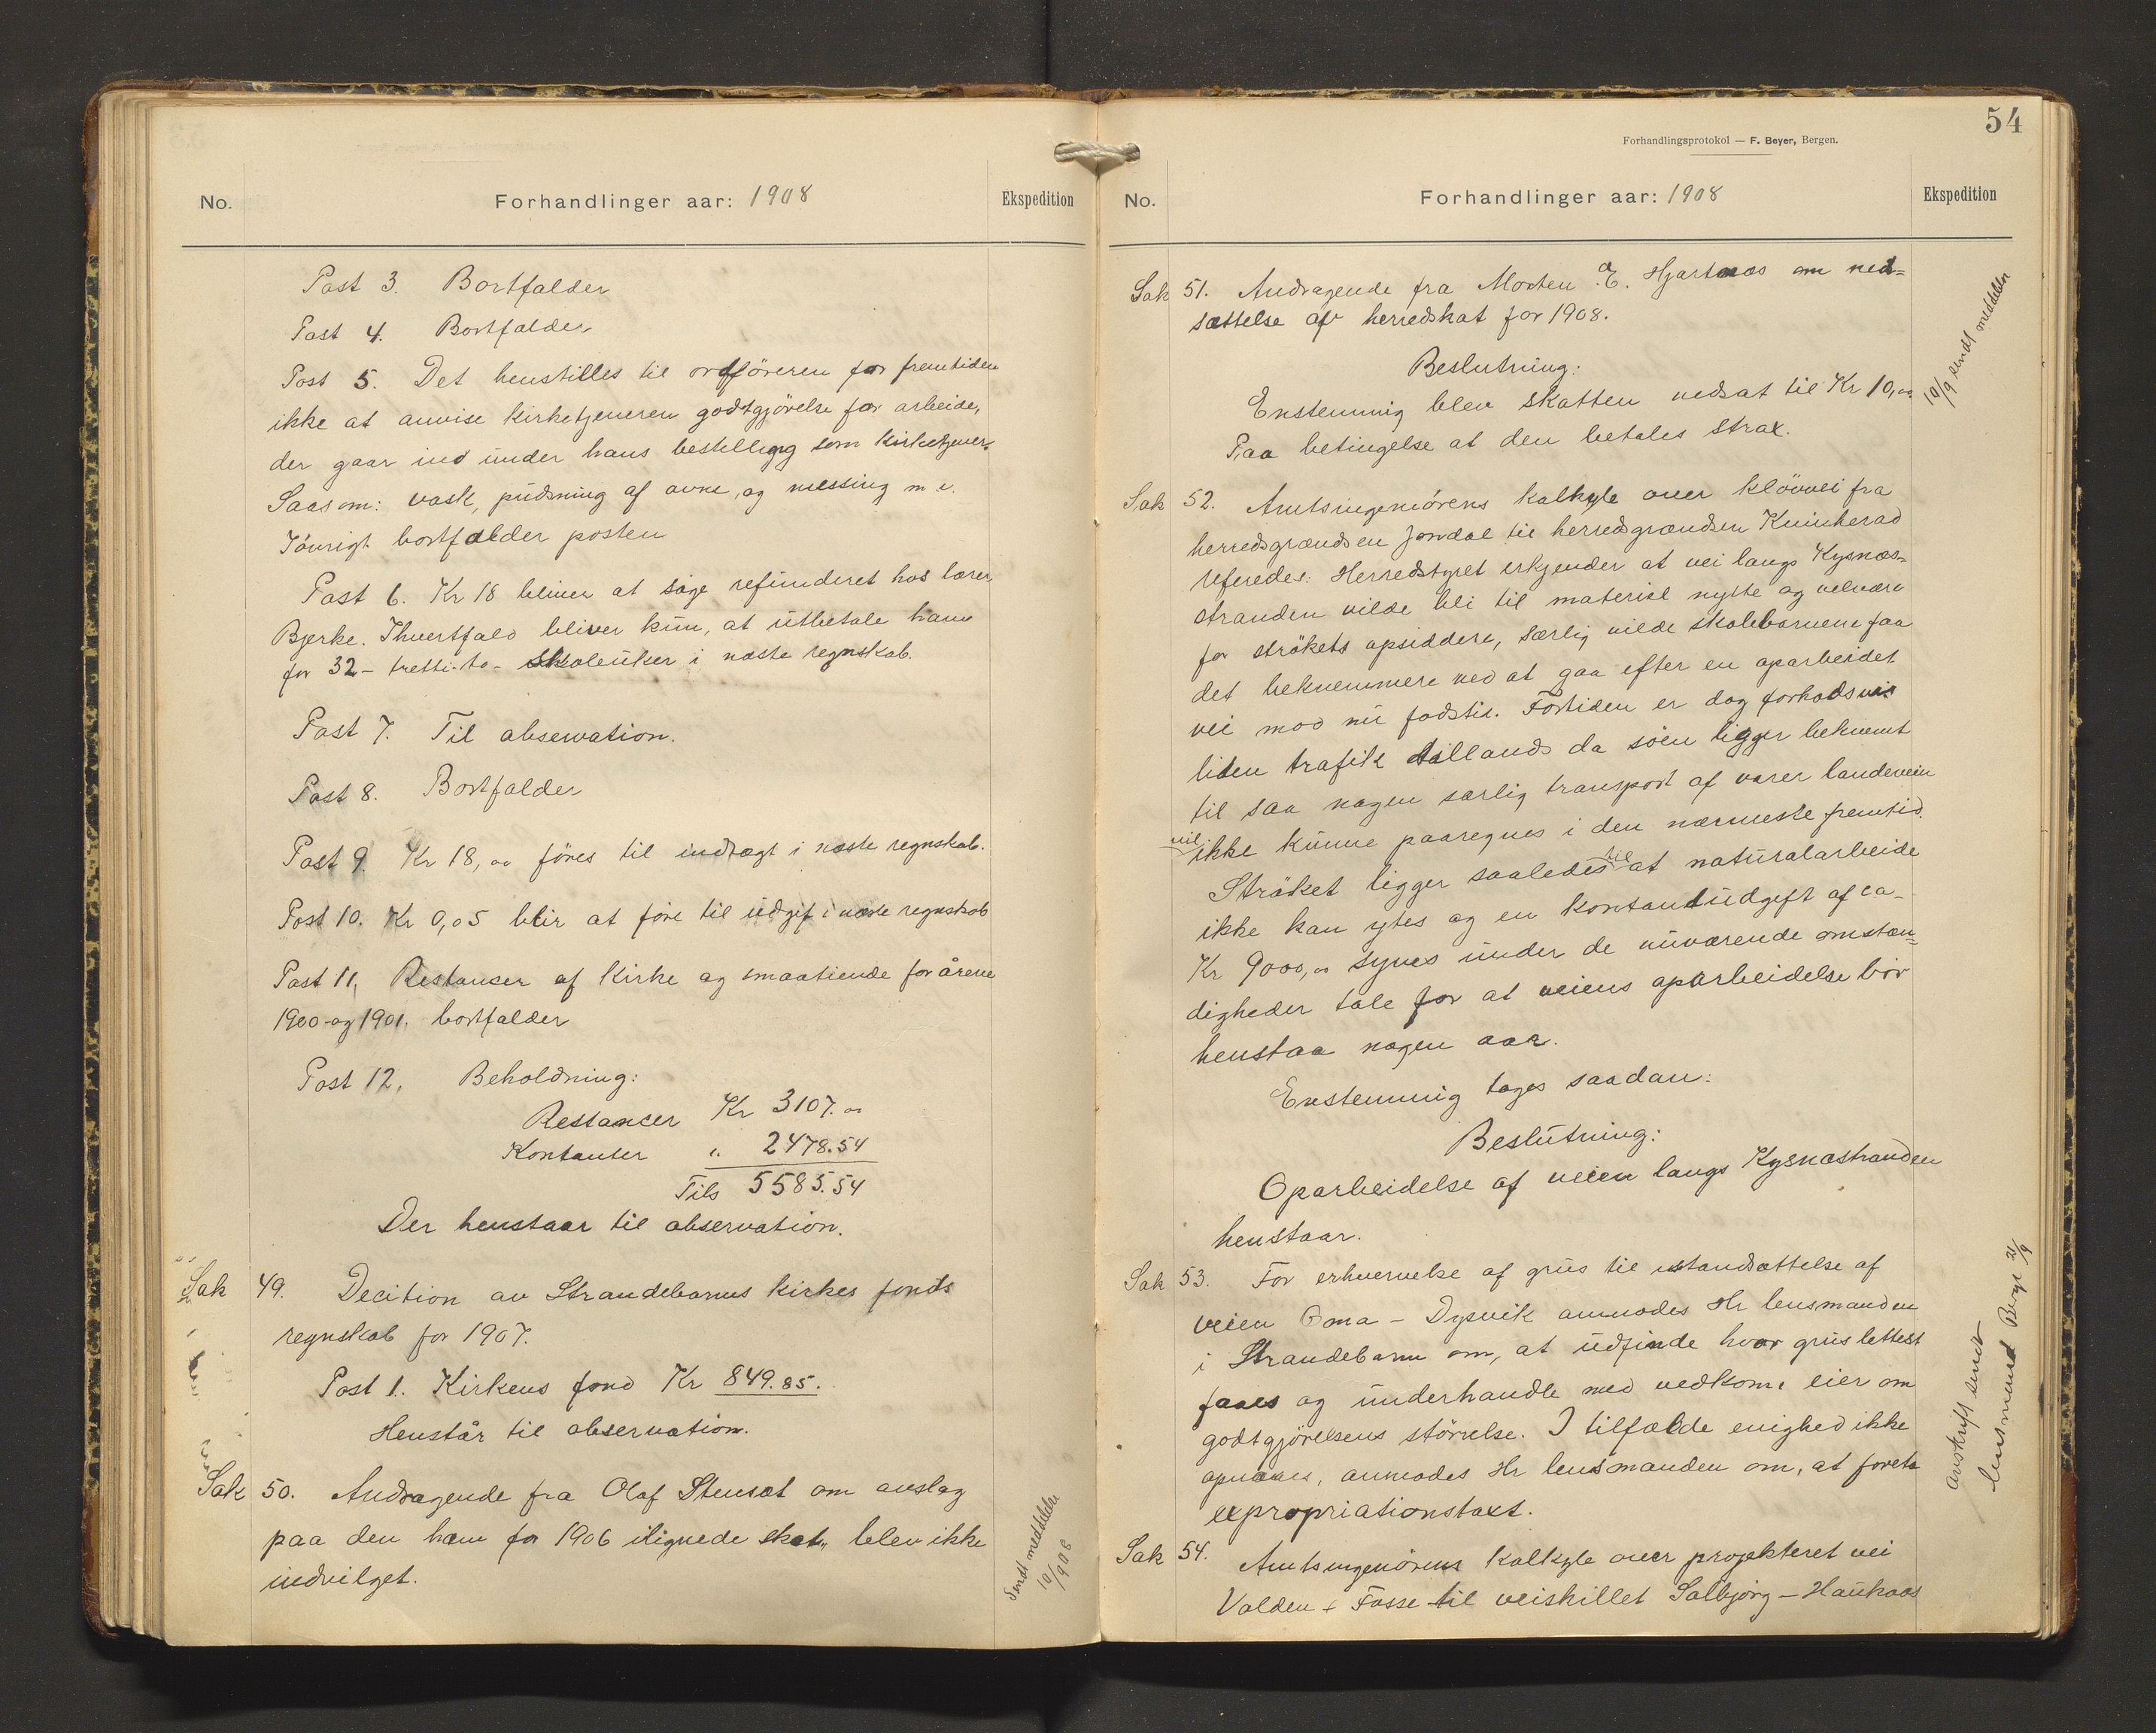 No.
Forhandlinger aar: 1908
Ekspedition
Post 3. Bortfalder
Post 4. Bortfalder
Post 5. Det henstilles til ordføreren for fremtiden
ikke at anvise kirketjeneren godtgjörelse for arbeide,
der gaar ind under hans bestilling som kirketjener.
Saasom: vask, pudsning af ovne, og messing m. v.
Iövrigt bortfalder posten
Post 6. Kr 18 bliver at søge refunderet hos lærer
Bjerke. Ihvertfald bliver kun, at utbetale ham
for 32 - tretti-to - skoleuker i næste regnskab.
Post 7. Til observation.
Post 8. Bortfalder
Post 9. Kr 18,00 föres til indtægt i næste regnskab.
Post 10. Kr 0,05 blir at före til udgift i næste regnskab
Post 11, Restanser af kirke og smaatiende for årene
1900 og 1901. bortfalder
Post 12, Beholdning:
Restancer Kr 3107.00
Kontanter " 2478.54
Tils 5585.54
Der henstaar til observation.
Sak 49. Decition av Strandebarms kirkes fonds
regnskab for 1907.
Post 1. Kirkens fond Kr 849.85.
Henstår til observation.
Sak 50. Andragende fra Olaf Stensæt om avslag
paa den ham for 1906 ilignede skat, blev ikke
indvilget.
Sendt meddelelse
10/9 08
54
Forhandlingsprotokol — F. Beyer, Bergen.
No.
Forhandlinger aar: 1908
Ekspedition
Sak 51. Andragende fra Morten E. Hjartnæs om ned=
sættelse af herredskat for 1908.
Beslutning:
Enstemmig blev skatten nedsat til Kr 10,00
Paa betingelse at den betales strax.
10/9 sendt meddelelse
Sak 52. Amtsingeniørens kalkyle over klövvei fra
herredsgrændsen Jondal til herredsgrændsen Kvinherad
referedes: Herredstyret erkjender at vei langs Kysnæs-
stranden vilde bli til materiel nytte og velvære
for strökets opsiddere, særlig vilde skolebarnene faa
det bekvemmere ved at gaa efter en oparbeidet
vei mod nu fodsti. Fortiden er dog forholdsvis
liden trafik tillands da söen ligger bekvemt
til saa nogen særlig transport af varer landeveien
vil ikke kunne paaregnes i den nærmeste fremtid.
Ströket ligger saaledes til at naturalarbeide
ikke kan ytes og en kontantudgift af ca -
Kr 9000,00 synes under de nuværende omstæn=
digheder tale for at veiens oparbeidelse bör
henstaa nogen aar.
Enstemmig toges saadan:
Beslutning:
Oparbeidelse af veien langs Kysnæstranden
henstaar.
Sak 53. For erhvervelse af grus til istandsættelse af
veien Oma - Dysvik anmodes Hr lensmanden
i Strandebarm om, at udfinde hvor grus lettest
faaes og underhandle med vedkom. eier om
godtgjörelsens störrelse. I tilfælde enighed ikke
opnaaes, anmodes Hr lensmanden om, at foreta
expropriationstaxt.
avskrift sendt
lensmand Berge 21/9
Sak 54. Amtsingeniörens kalkyle over projekteret vei
Valden + Fosse til veiskillet Solbjörg - Haukaas